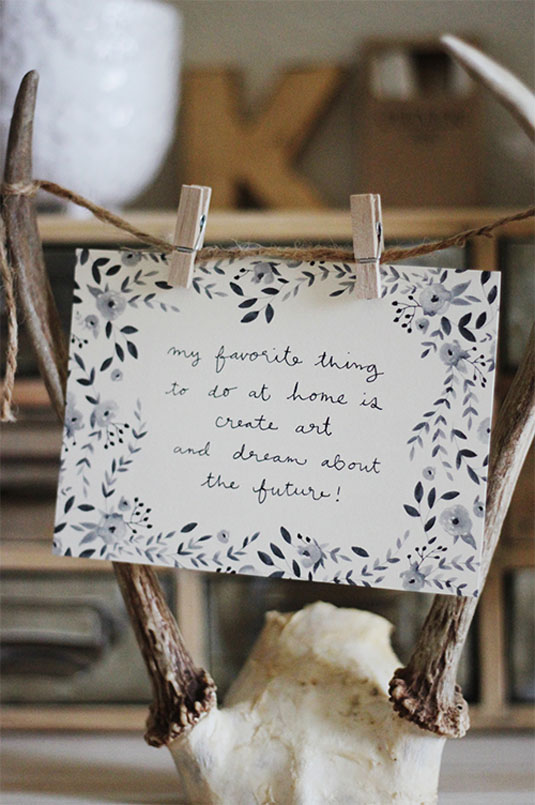 K
my favorite thing
to do at home is
create art
and dream about
the future!